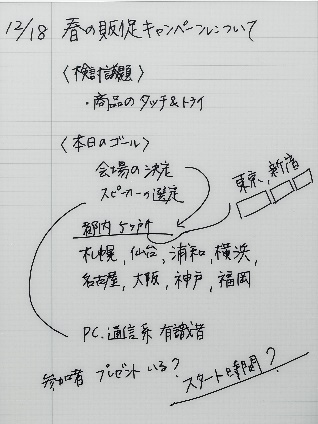 12/18 春の販促キャンペーンについて
〈検討課題〉
・商品のタッチ&トライ
〈本日のゴール〉
会場の決定
スピーカーの選定
東京、新宿
都内 5ヶ所
札幌, 仙台, 浦和, 横浜,
名古屋, 大阪, 神戸, 福岡
PC.通信系 有識者
参加者 プレゼント いる?
スタート時間?